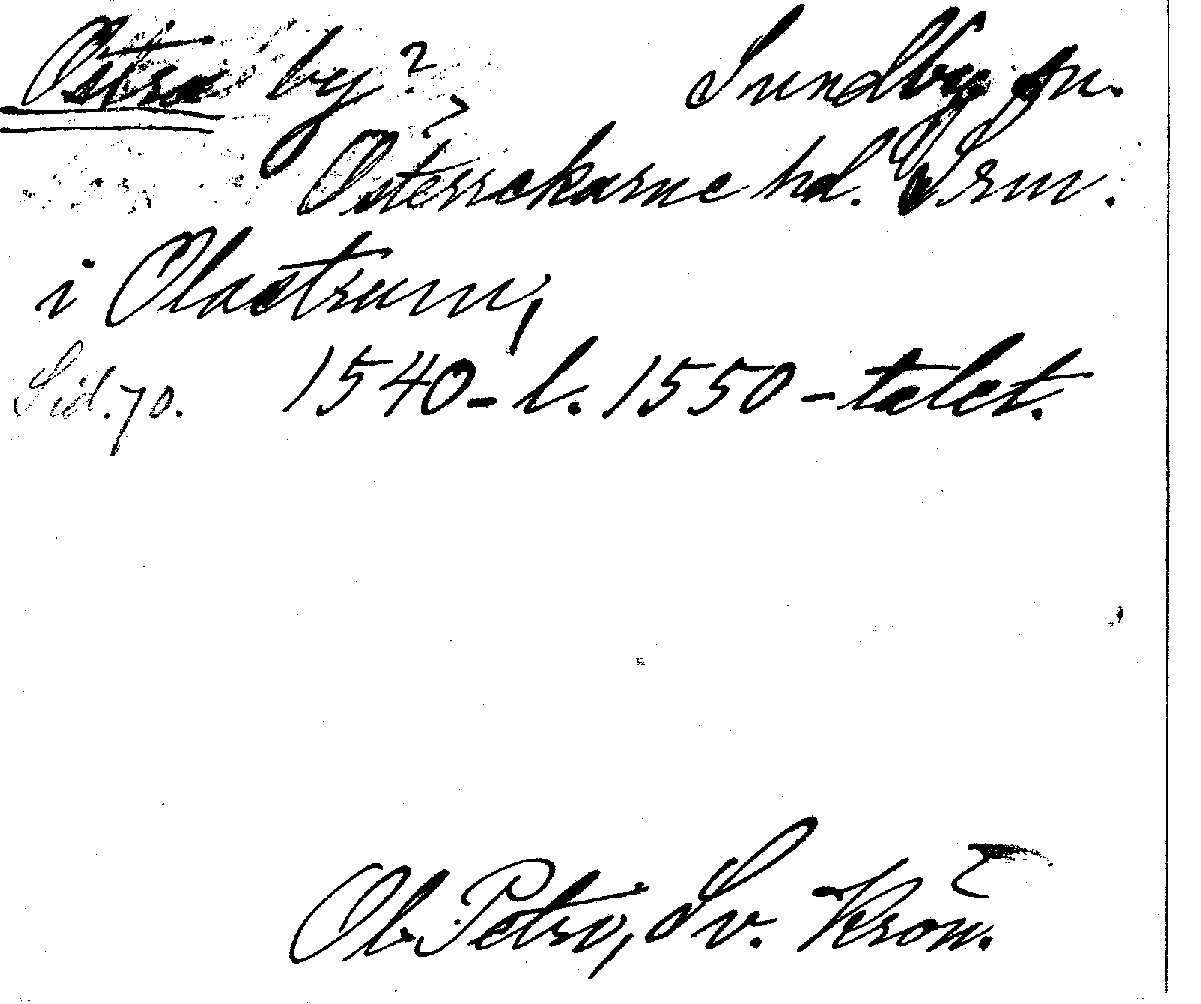 Östra by? Sundby sn.
Österrekarne hd. Srm.
i Olastrum,
Sid. 70. 1540- l. 1550-talet.
Ol. Petri, Sv. Krön.